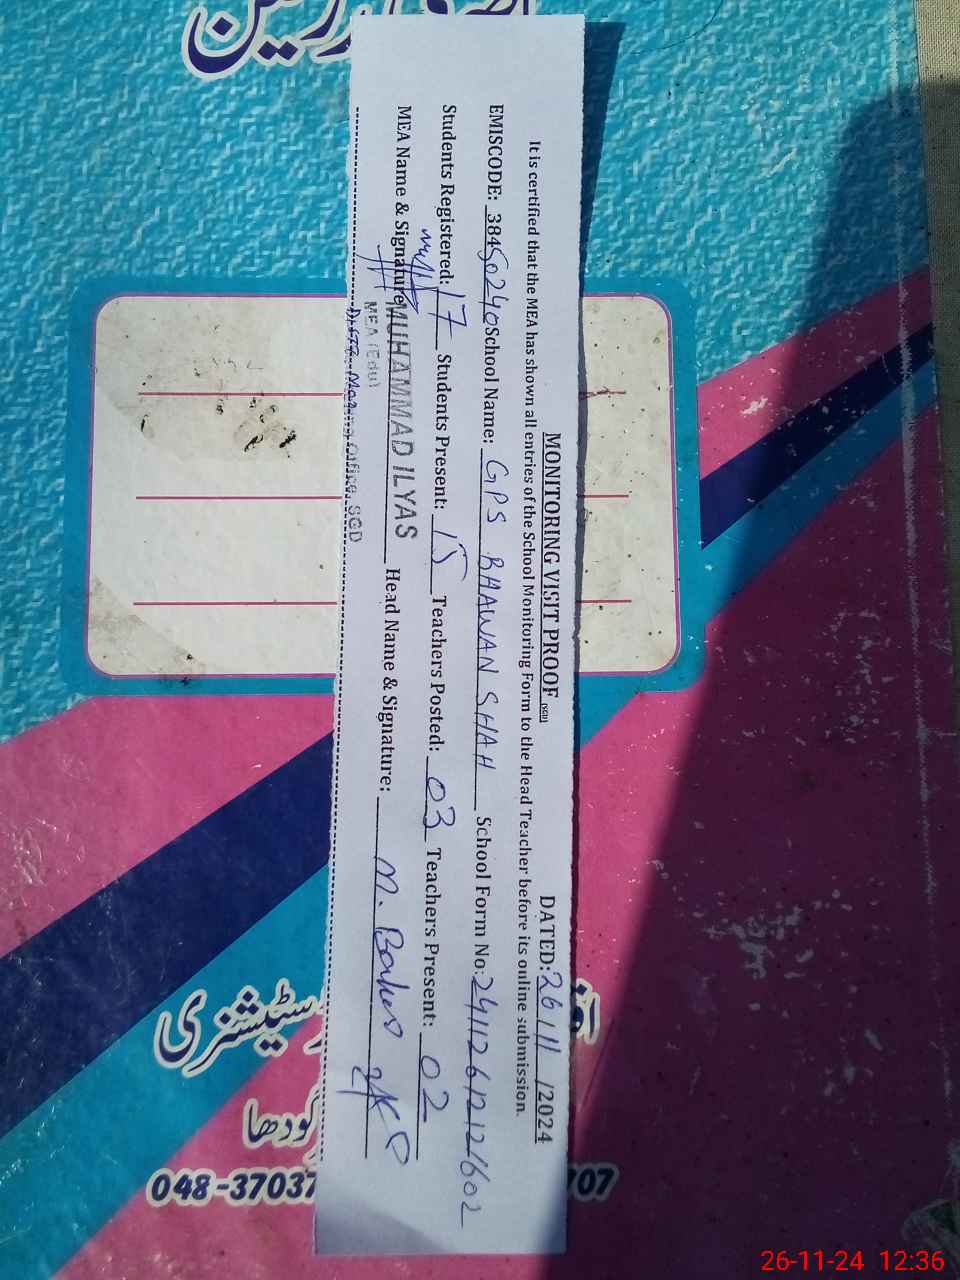 MONITORING VISIT PROOF (SGD) DATED: 26/11/2024
It is certified that the MEA has shown all entries of the School Monitoring Form to the Head Teacher before its online submission.
EMISCODE: 38450240 School Name: GPS BHAWAN SHAH School Form No: 24112612121602
Students Registered: 17 Students Present: 15 Teachers Posted: 03 Teachers Present: 02
MEA Name & Signature MUHAMMAD ILYAS Head Name & Signature: M.
MEA (Edu)
Office, SGD
سٹیشنری
گودھا
048-37037
707
26-11-24 12:36